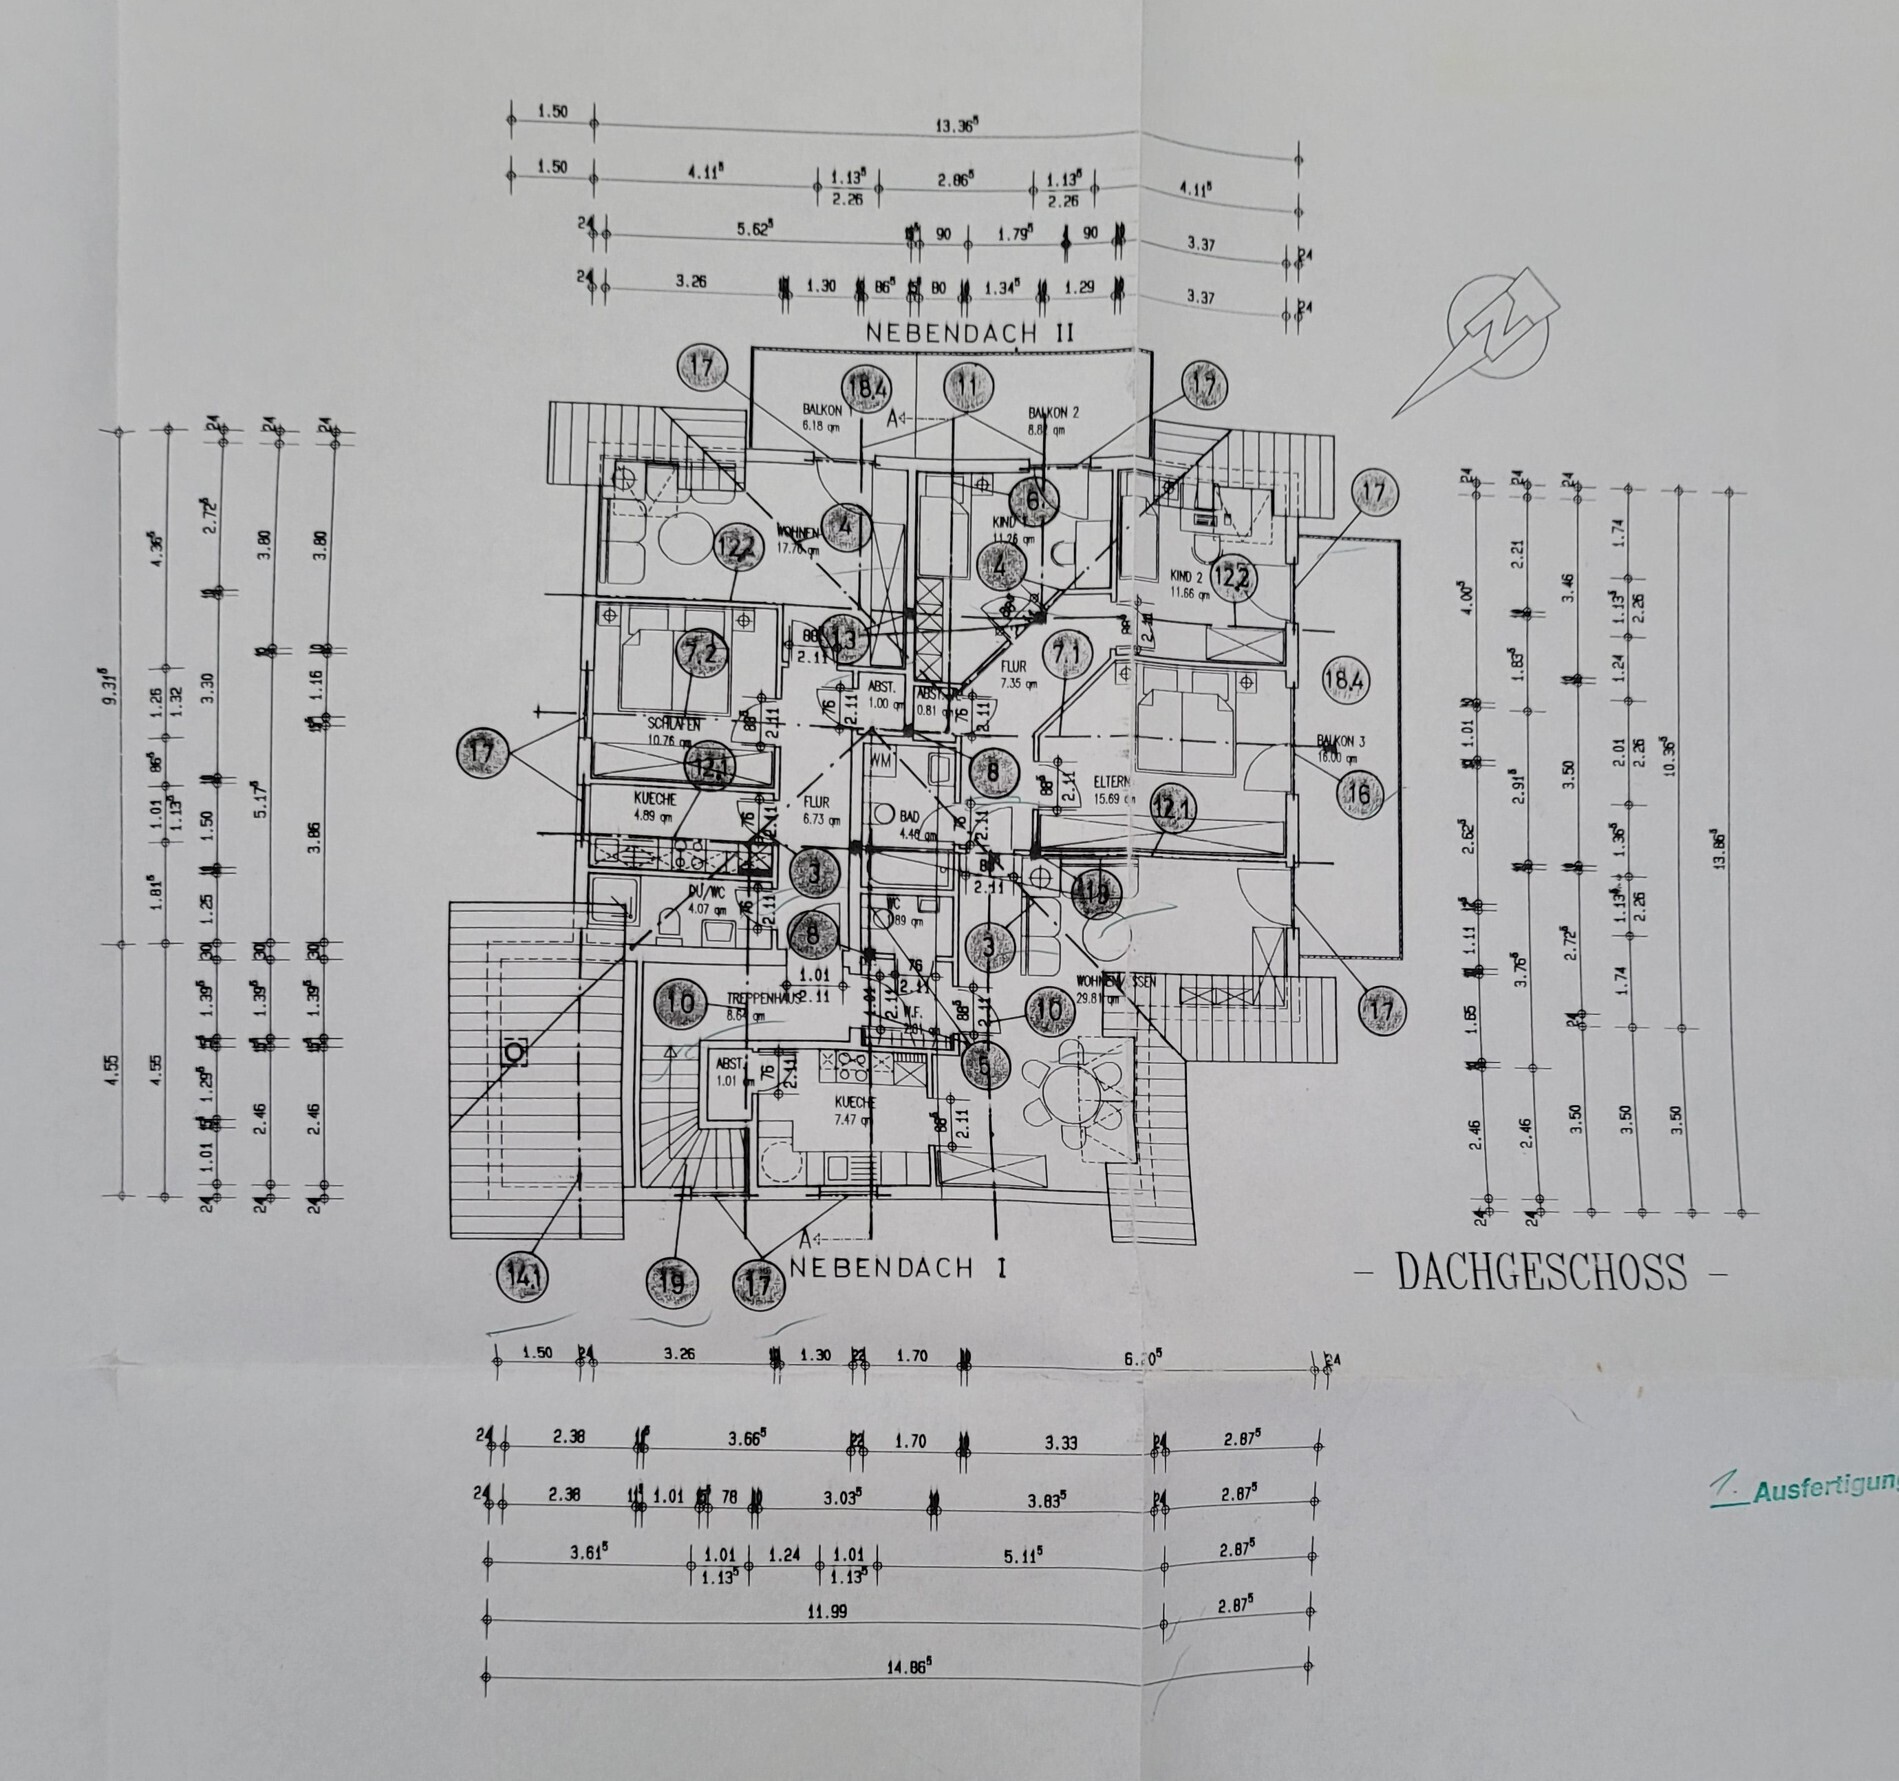 1.50 13.36⁵
1.50 4.11⁵ 1.13⁵ 2.86⁵ 1.13⁵ 4.11⁵
2.26 2.26
24 5.62⁵ 90 1.79⁵ 90 3.37 24
24 3.26 1.30 86⁵ 80 1.34⁵ 1.29 3.37 24
NEBENDACH II
N
17 18.4 11 17
BALKON 1
6.18 qm
A
BALKON 2
8.82 qm
17
WOHNEN
17.76 qm
12.2 4
6
KIND 1
11.26 qm
4
KIND 2
11.66 qm
12.2
7.2
88⁵
2.11
13
FLUR
7.35 qm
7.1
88⁵
2.11
18.4
SCHLAFEN
10.76 qm
88⁵
2.11
76
2.11
ABST.
1.00 qm
ABST.
0.81 qm
76
2.11
BALKON 3
16.00 qm
17
12.1
WM
8
ELTERN
15.69 qm
88⁵
2.11
16
KUECHE
4.89 qm
76
2.11
FLUR
6.73 qm
BAD
4.46 qm
76
2.11
12.1
3
2.11
DU/WC
4.07 qm
76
2.11
WC
1.89 qm
8
3
10
TREPPENHAUS
8.64 qm
1.01
2.11
76
2.11
1.01
2.11
W.F.
88⁵
2.11
10
WOHNEN/ESSEN
29.81 qm
17
ABST.
1.01 qm
76
2.11
5
KUECHE
7.47 qm
88⁵
2.11
A
14.1 19 17
NEBENDACH I
- DACHGESCHOSS -
9.31⁵ 4.55
4.36⁵ 1.26 86⁵ 1.01 1.81⁵ 4.55
1.32 1.13⁵
24 2.72⁵ 10 3.30 10 1.50 10 1.25 30 1.39⁵ 1.29⁵ 1.01 24
24 3.80 10 5.17⁵ 30 1.39⁵ 2.46 24
24 3.80 10 1.16 3.86 30 1.39⁵ 2.46 24
24 4.00⁵ 10 1.01 10 2.62⁵ 1.11 10 1.65 10 2.46 24
24 2.21 10 1.83⁵ 2.91⁵ 10 3.76⁵ 2.46 24
24 3.46 10 3.50 10 2.72⁵ 24 3.50
1.74 1.13⁵ 1.24 2.01 1.36⁵ 1.13⁵ 1.74 3.50
2.26 2.26 2.26
10.36⁵ 3.50
13.86⁵
1.50 24 3.26 1.30 22 1.70 10 24
24 2.38 11⁵ 3.66⁵ 22 1.70 10 3.33 24 2.87⁵
24 2.38 11⁵ 1.01 78 10 3.03⁵ 10 3.83⁵ 24 2.87⁵
3.61⁵ 1.01 1.24 1.01 5.11⁵ 2.87⁵
1.13⁵ 1.13⁵
11.99 2.87⁵
14.86⁵
1. Ausfertigung